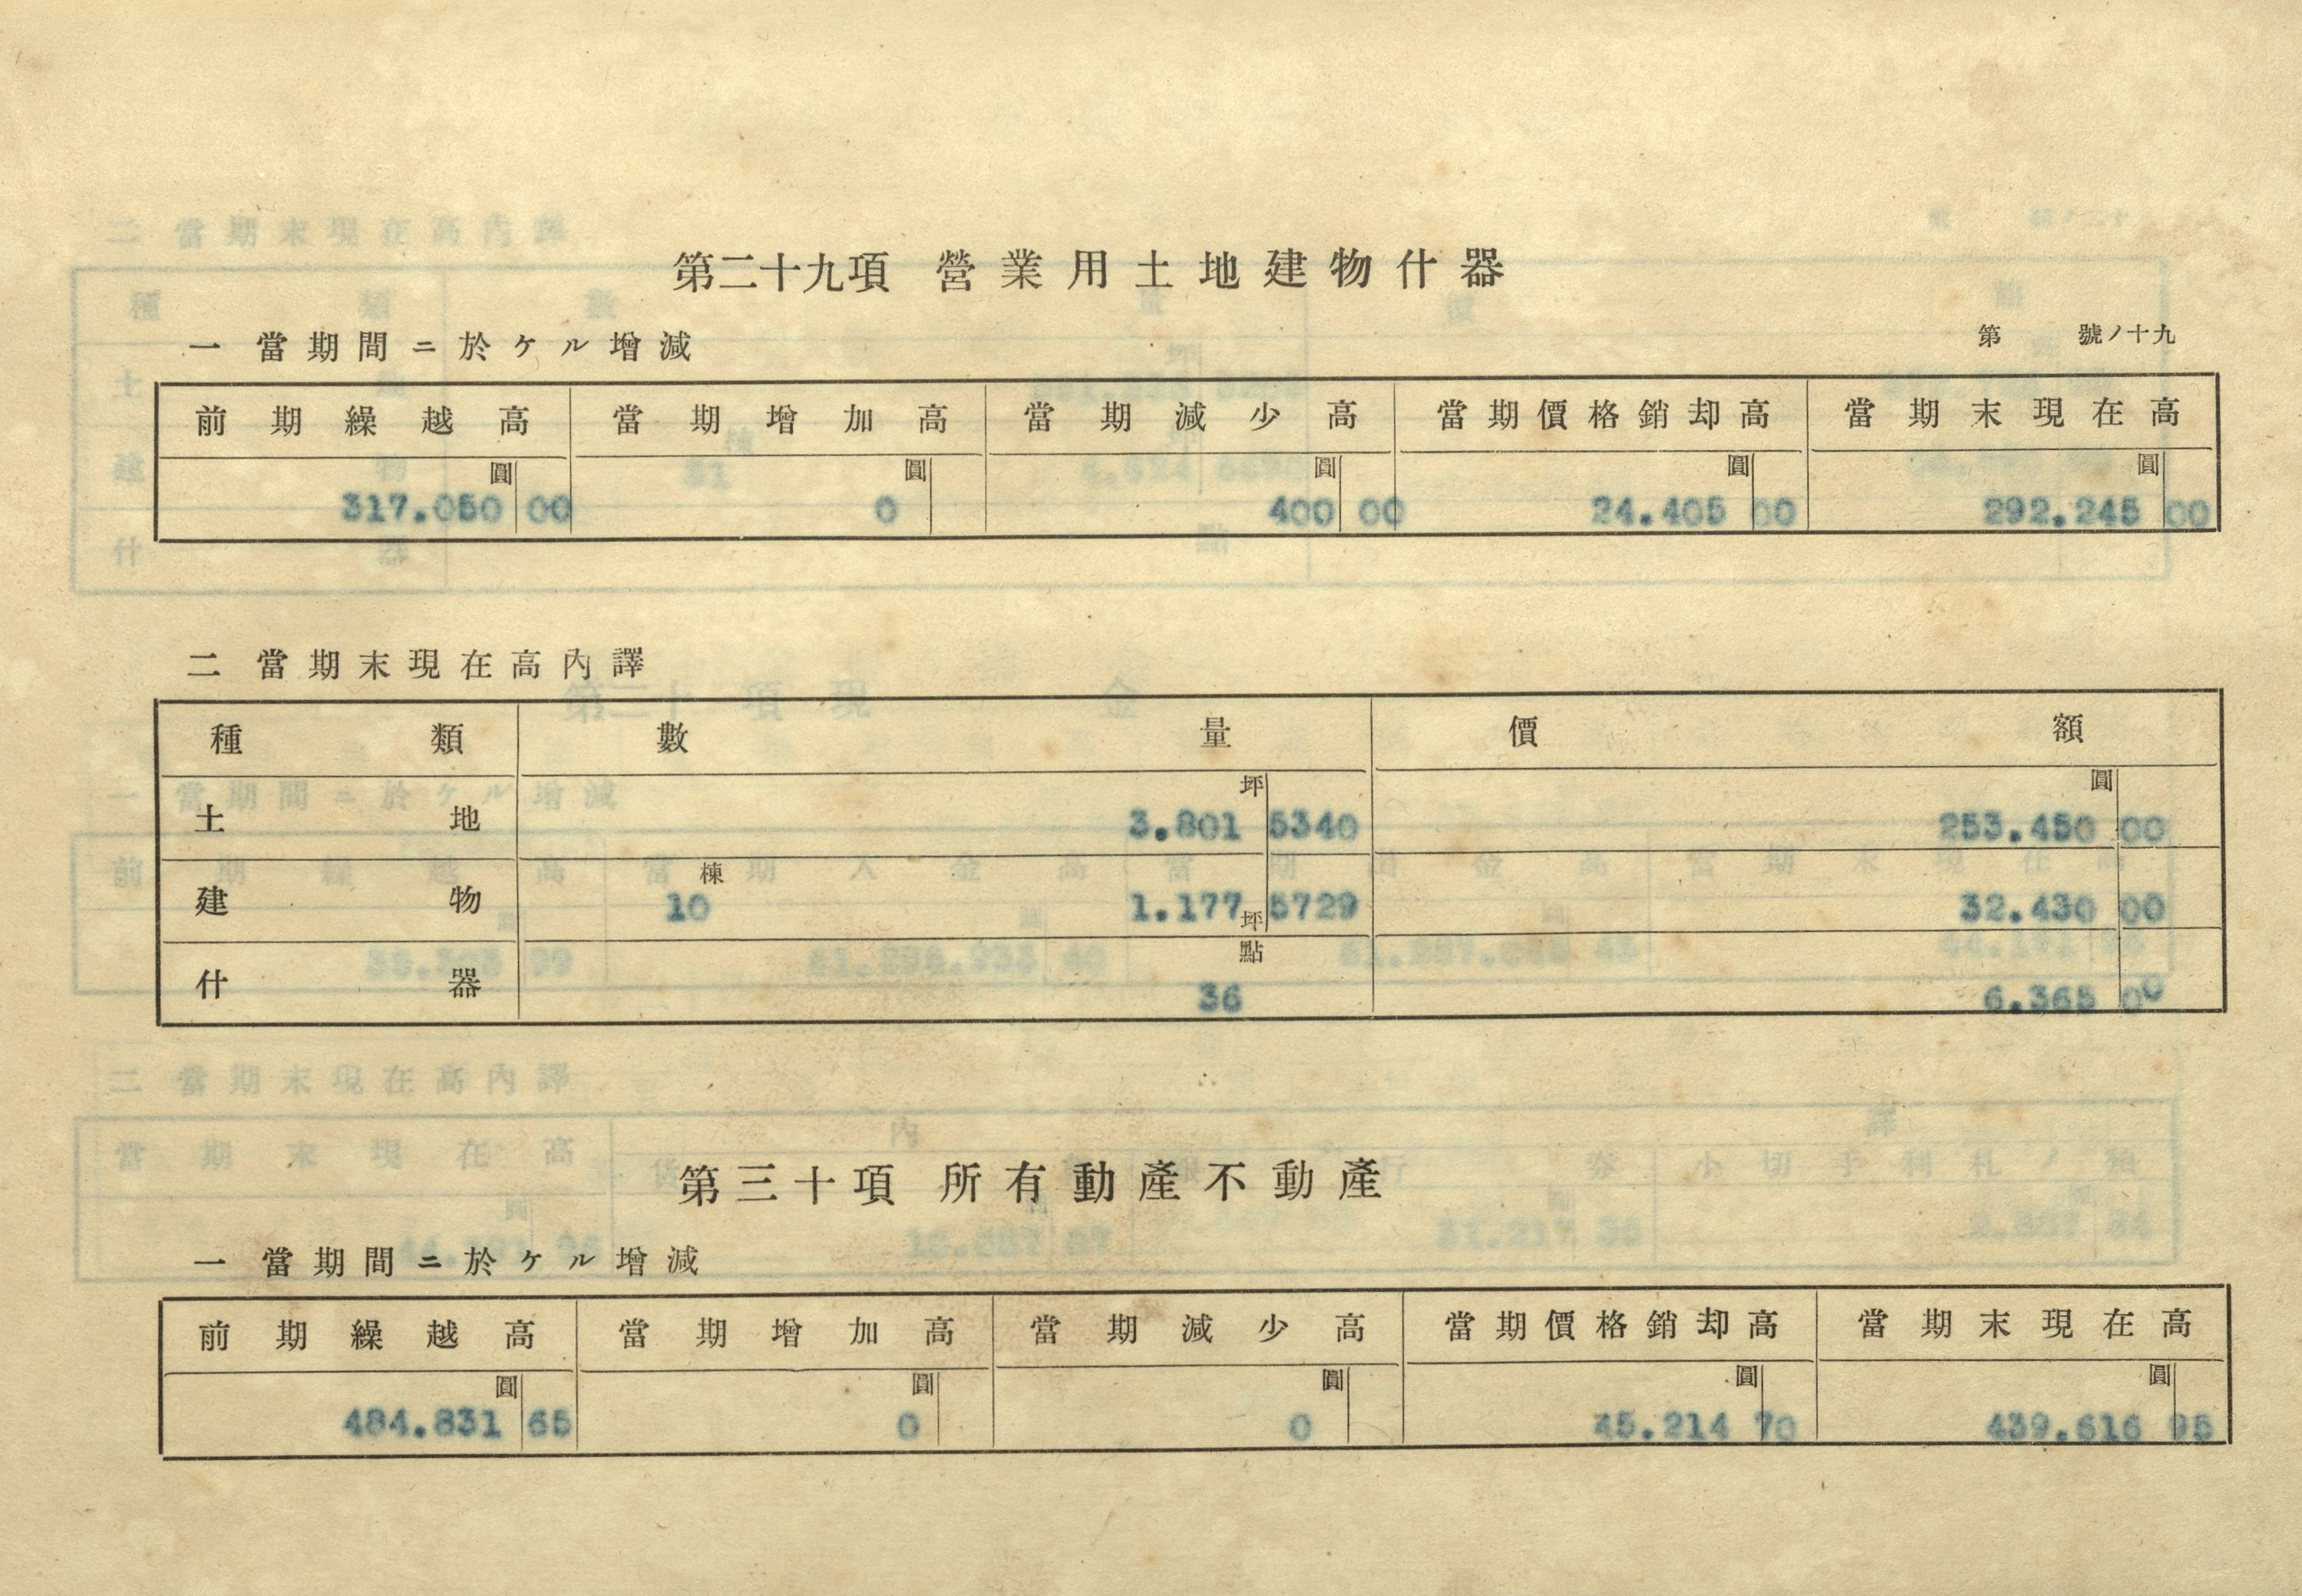 第二十九項 營業用土地建物什器
一 當期間ニ於ケル增減
第 號ノ十九
前期繰越高 當期增加高 當期減少高 當期價格銷却高 當期末現在高
圓 圓 圓 圓 圓
317.050 00 0 400 00 24.405 00 292.245 00
二 當期末現在高內譯
種類 數量 價額
坪 圓
土地 3.801 5340 253.450 00
棟
建物 10 1.177 坪 5729 32.430 00
點
什器 36 6.365 00
第三十項 所有動產不動產
一 當期間ニ於ケル增減
前期繰越高 當期增加高 當期減少高 當期價格銷却高 當期末現在高
圓 圓 圓 圓 圓
484.831 65 0 0 45.214 70 439.616 95